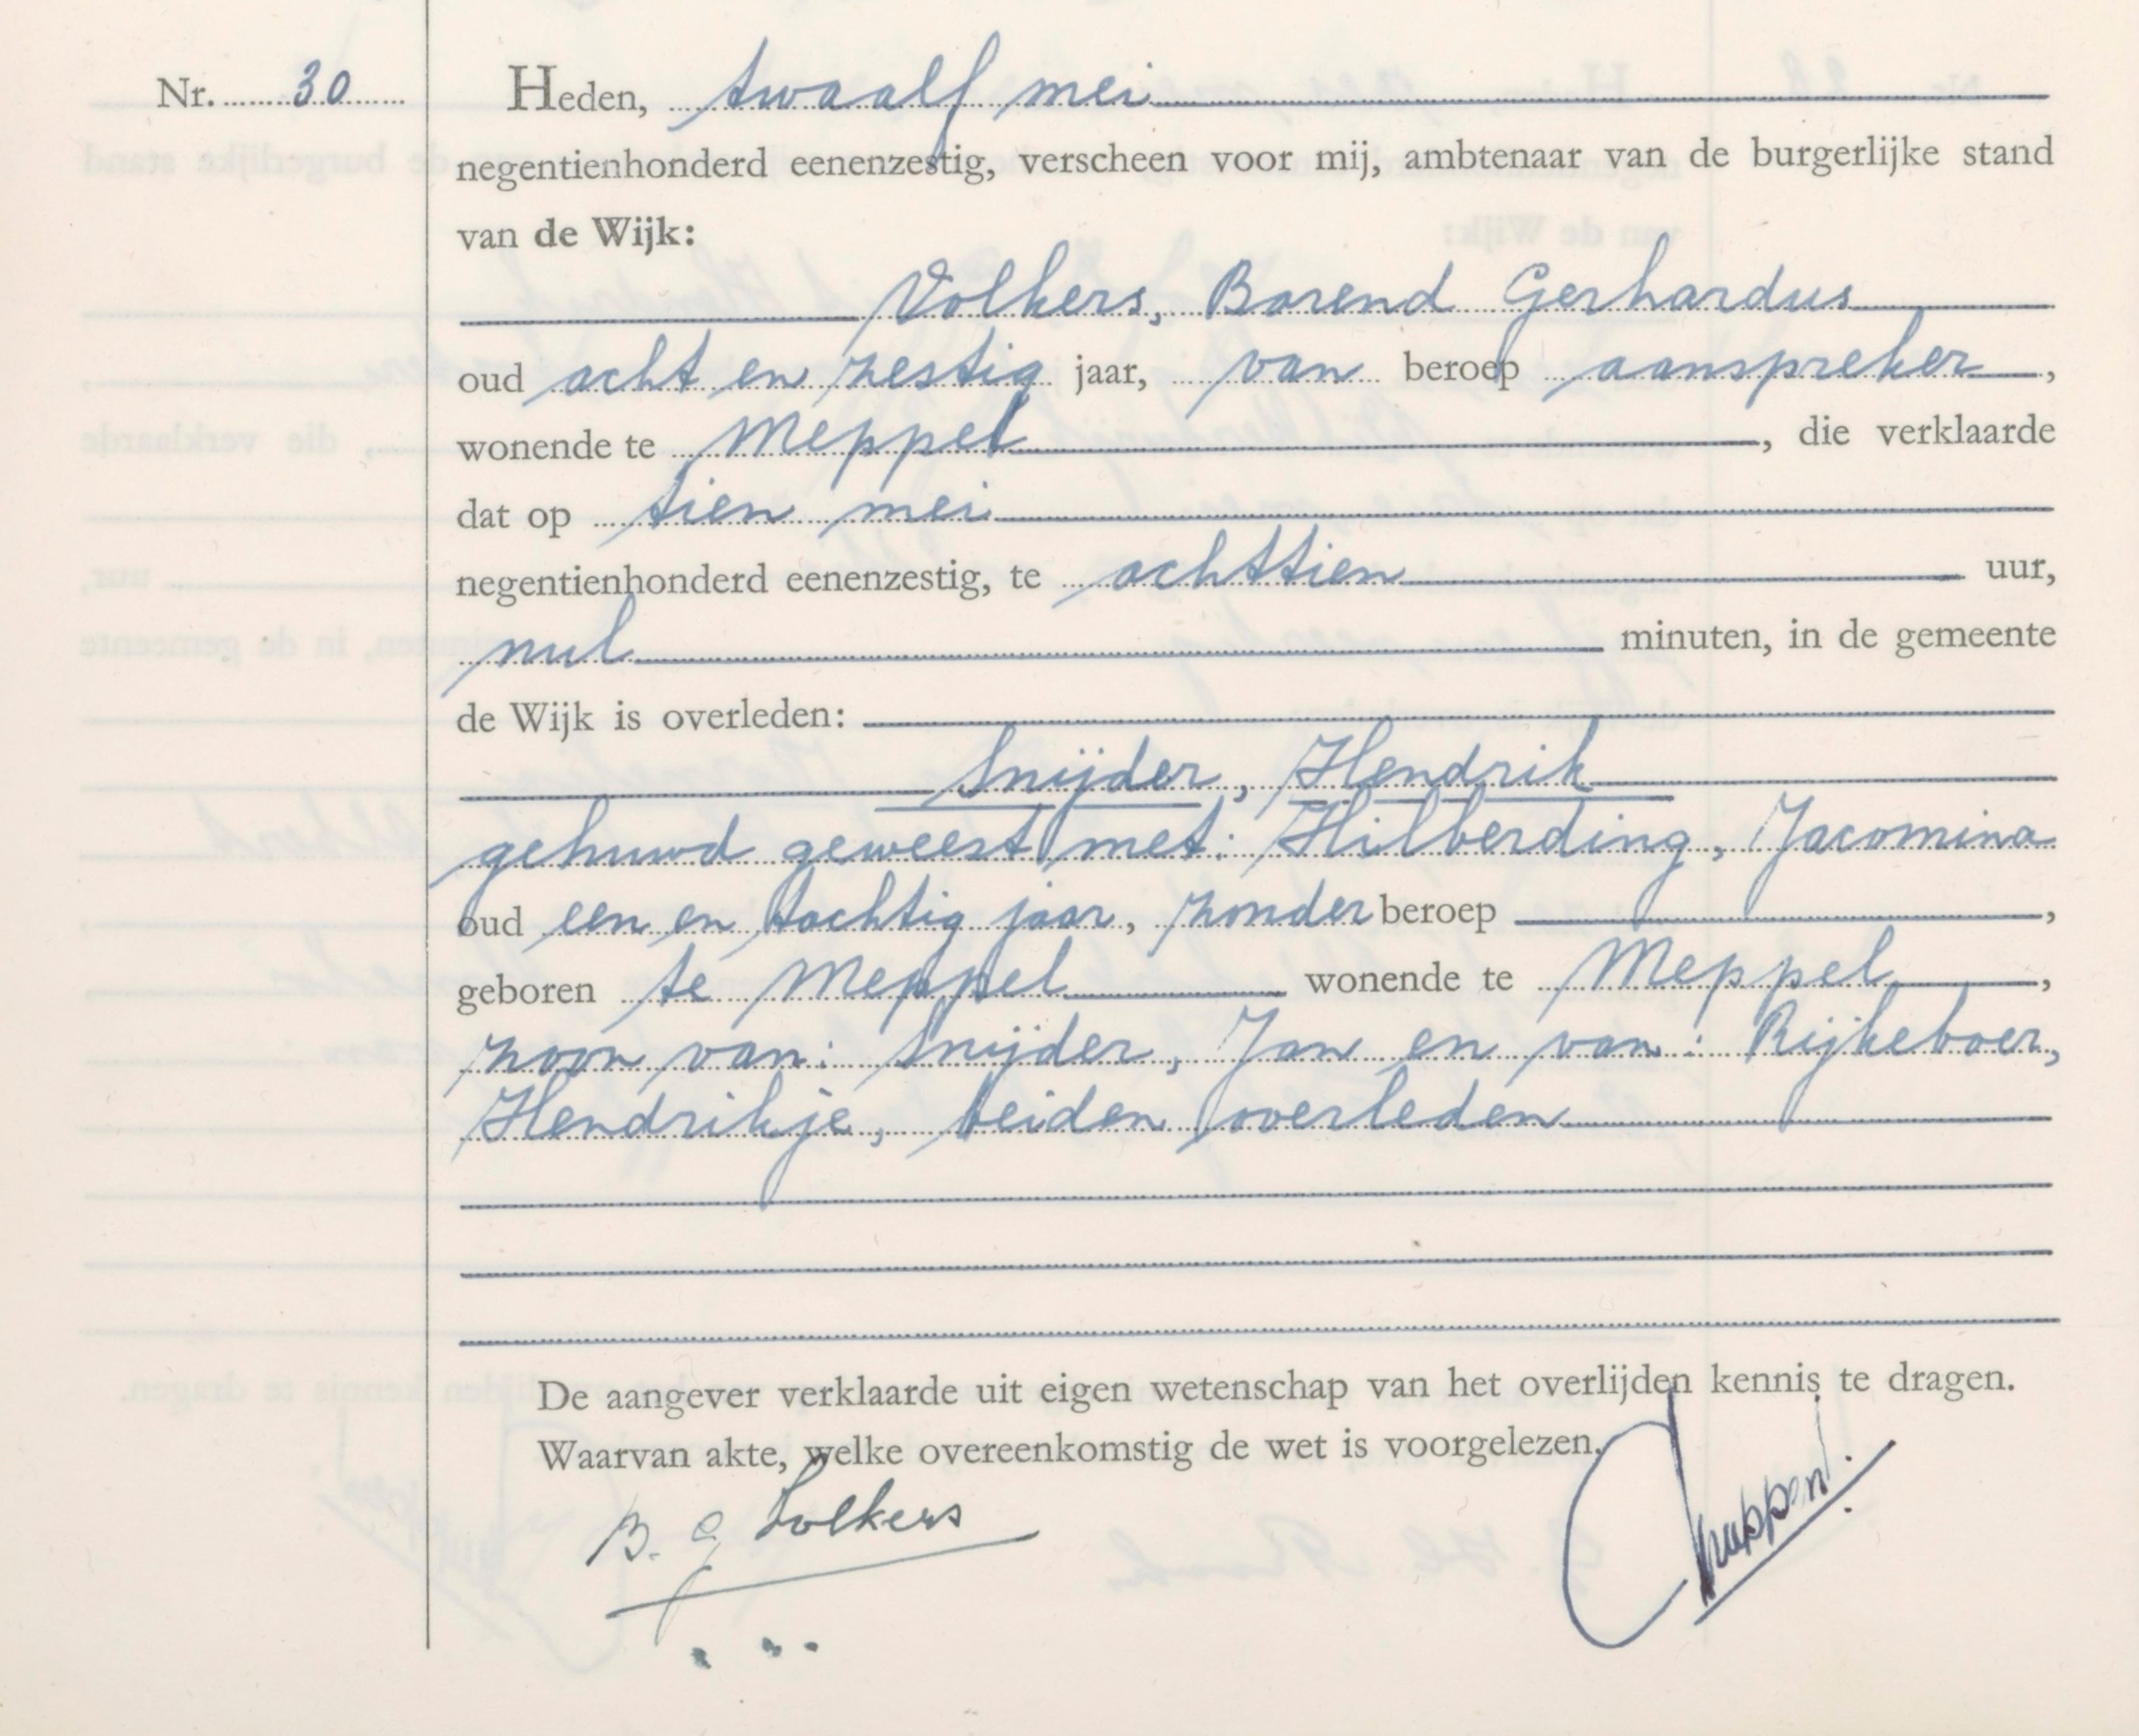 Nr. 30
Heden, twaalf mei
negentienhonderd eenenzestig, verscheen voor mij, ambtenaar van de burgerlijke stand
van de Wijk:
Volkers, Barend Gerhardus
oud acht en zestig jaar, van beroep aanspreker,
wonende te Meppel, die verklaarde
dat op tien mei
negentienhonderd eenenzestig, te achttien uur,
nul minuten, in de gemeente
de Wijk is overleden:
Snijder, Hendrik
gehuwd geweest met: Hilberding, Jacomina
oud een en tachtig jaar, zonder beroep,
geboren te Meppel wonende te Meppel,
zoon van: Snijder, Jan en van: Rijkeboer,
Hendrikje, beiden overleden
De aangever verklaarde uit eigen wetenschap van het overlijden kennis te dragen.
Waarvan akte, welke overeenkomstig de wet is voorgelezen.
B. G. Volkers